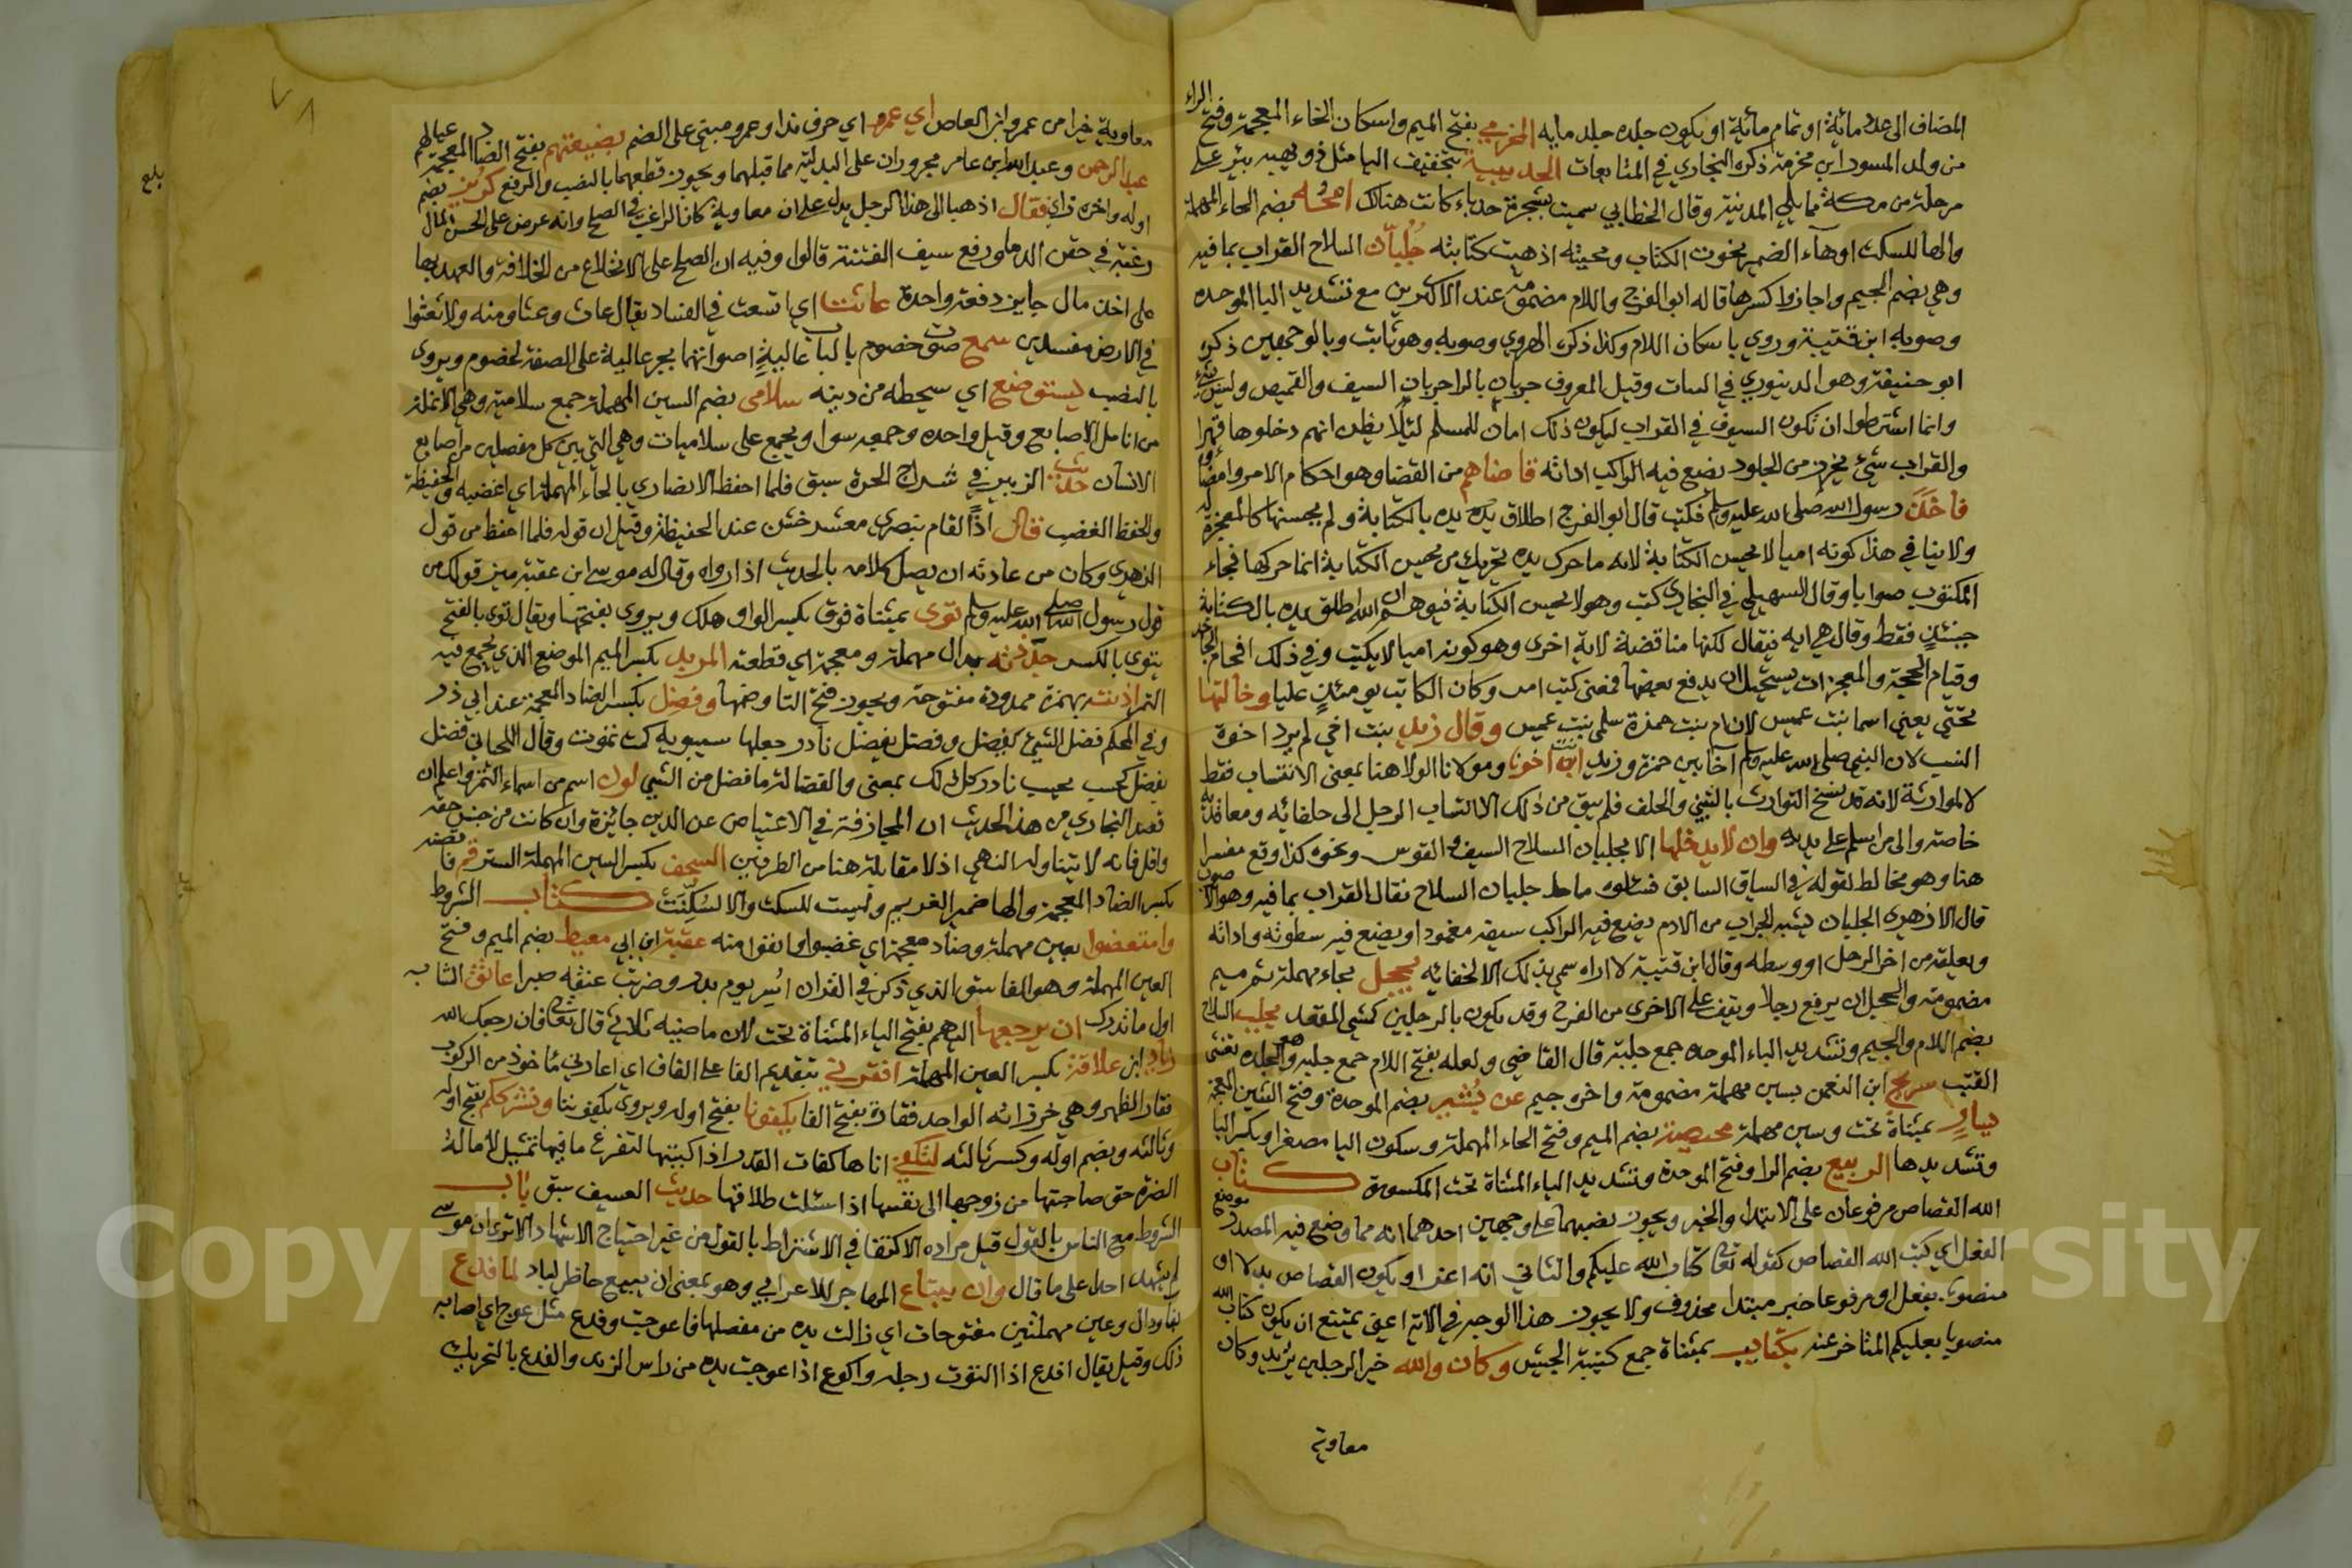 المضاف الى عدة مائة او تمام مائة او يكون جلده جلد مايه المخرمي بفتح الميم واسكان الخاء المعجمة وفتح الراء
من ولد المسور ابن مخرمة ذكره البخاري في المتابعات الحديبية بتخفيف اليا مثل دويهية بئر على
مرحلة من مكة مما يلي المدينة وقال الخطابي سميت بشجرة حدباء كانت هنالك امحه بضم الحاء المهملة
والها للسكت او هاء الضمير يمحون الكتاب ومحيته اذهبت كتابته جلبان السلاح القراب بما فيه
وهي بضم الجيم واجازوا كسرها قاله ابو الفرج واللام مضمومة عند الاكثرين مع تشديد البا الموحده
وصوبه ابن قتيبة وروي باسكان اللام وكذا ذكره الهروي وصوبه وهو ثابت وبالوجهين ذكره
ابو حنيفة وهو الدينوري في النبات وقيل المعروف جربان بالرا جربان السيف والقميص وليس بشئ
وانما اشترطوا ان تكون السيوف في القراب ليكون ذلك امان للمسلم لئلا يظن انهم دخلوها قهرا
والقراب شئ يخرز من الجلود يضع فيه الراكب اداته قاضاهم من القضا وهو احكام الامر وامضاؤه
فاخذ رسول الله صلى الله عليه وسلم فكتب قال ابو الفرج اطلاق يده بالكتابة ولم يحسنها كالمعجزة له
ولا ينافي هذا كونه اميا لا يحسن الكتابة لانه ما حرك يده تحريك من يحسن الكتابة انما حركها فجاء
المكتوب صوابا وقال السهيلي في البخاري كتب وهو لا يحسن الكتابة فتوهم ان الله اطلق يده بالكتابة
حينئذ فقط وقال هي ايه فيقال لكنها مناقضة لاية اخرى وهو كونه اميا لا يكتب وفي ذلك افحام الجاحد
وقيام الحجة والمعجزات يستحيل ان يدفع بعضها فمعنى كتب امر وكان الكاتب يومئذ عليا وخالتها
تحتي يعني اسما بنت عميس لان ام بنت حمزة سلمى بنت عميس وقال زيد بنت اخي لم يرد اخوة
النسب لان النبي صلى الله عليه وسلم آخا بين حمزة وزيد انت اخونا ومولانا الولا هنا بمعنى الانتساب فقط
لا الموارثة لانه قد نسخ التوارث بالتبني والحلف فلم يبق من ذلك الا انتساب الرجل الى حلفائه ومعاقديه
خاصة والى من اسلم على يديه وان لا يدخلها الا بجلبان السلاح السيف والقوس ونحوه كذا وقع مفسرا
هنا وهو مخالط لقوله في السياق السابق فسئلوه ما جلبان السلاح فقال القراب بما فيه وهو الاصوب
قال الازهري الجلبان يشبه الجراب من الادم يضع فيه الراكب سيفه مغمودا ويضع فيه سطوته واداته
ويعلقه من اخر الرحل او وسطه وقال ابن قتيبة لا اراه سمي بذلك الا لخفائه يحجل بحاء مهملة ثم جيم
مضمومة والحجل ان يرفع رجلا ويقف على الاخرى من الفرح وقد يكون بالرجلين كمشي المقعد بجلب السلاح
بضم اللام والجيم وتشديد الباء الموحده جمع جلبة قال القاضي ولعله بفتح اللام جمع جلبة وهو الجلده تغشى
القتب سريج ابن النعمن بسين مهملة مضمومة واخره جيم عن بُشَير بضم الموحدة وفتح الشين المعجمة
يسار بمثناة تحت وسين مهملة محيصة بضم الميم وفتح الحاء المهملة وسكون اليا مصغرا وبكسر اليا
وتشديدها الربيع بضم الرا وفتح الموحدة وتشديد الياء المثناة تحت المكسورة كتاب
الله القصاص مرفوعان على الابتدا والخبر ويجوز نصبهما على وجهين احدهما انه مما وضع فيه المصدر موضع
الفعل اي كتب الله القصاص كقوله تعالى كتاب الله عليكم والثاني انه اغرا ويكون القصاص بدلا او
منصوبا بفعل او مرفوعا خبر مبتدا محذوف ولا يجوز هذا الوجه في الاية اعني يمتنع ان يكون كتاب الله
منصوبا بعليكم المتاخر عنه بكتايب بمثناة جمع كتيبة الجيش وكان والله خير الرجلين يريد وكان
معاوية
٧٨
معاوية خيرا من عمرو ابن العاص اي عمرو اي حرف ندا وعمرو مبني على الضم بضيعتهم بفتح الضاد المعجمة عيالهم
عبد الرحمن وعبد الله ابن عامر مجروران على البدلية مما قبلهما ويجوز قطعهما بالنصب والرفع كريز بضم
اوله واخره زاي فقال اذهبا الى هذا الرجل يدل على ان معاوية كان الراغب في الصلح وانه عرض على الحسن المال
رغبة في حقن الدماء ورفع سيف الفتنة قالوا وفيه ان الصلح على الانخلاع من الخلافة والعهد بها
على اخذ مال جايز دفعة واحدة عاثت اي اتسعت في الفساد يقال عاث وعثا ومنه ولا تعثوا
في الارض مفسدين سمع صوت خصوم بالباب عالية اصواتهما بجر عالية على الصفة لخصوم ويروى
بالنصب يستوضع اي سيحطه من دينه سلامى بضم السين المهملة جمع سلامية وهي الانملة
من انامل الاصابع وقيل واحده وجمعه سوا ويجمع على سلاميات وهي التي بين كل مفصلين من اصابع
الانسان حديث الزبير في شراج الحرة سبق فلما احفظ الانصاري بالحاء المهملة اي اغضبه والحفيظة
والحفظ الغضب قال اذًا لقام بنصري معشر خشن عند الحفيظة وقيل ان قوله فلما احفظ من قول
الزهري وكان من عادته ان يصل كلامه بالحديث اذا رواه وقال له موسى ابن عقبة ميز قولك من
قول رسول الله صلى الله عليه وسلم توى بمثناة فوق بكسر الواو هلك ويروى بفتحها ويقال توى بالفتح
يتوى بالكسر جدّدته بدال مهملة ومعجمة اي قطعته المربد بكسر الميم الموضع الذي يجمع فيه
التمر اذنت بهمزة ممدودة مفتوحة ويجوز فتح التا وضمها وفضل بكسر الضاد المعجمة عند ابي ذر
وفي المحكم فضل الشيئ يفضل وفضل يفضل نادر جعلها سيبويه كمت تموت وقال اللحياني فضل
يفضل كحسب يحسب نادر كل ذلك بمعنى والفضالة ما فضل من الشيئ لون اسم من اسماء التمر واعلم ان
قصد البخاري من هذا الحديث ان المجازفة في الاعتياض عن الدين جائزة وان كانت من جنس حقه
واقل فانه لا يتناوله النهي اذ لا مقابلة هنا من الطرفين السجف بكسر السين المهملة الستر قم فاقضه
بكسر الضاد المعجمة والها ضمير الغريم وليست للسكت والا لسُكِّنَت كتاب الشروط
وامتعضوا بعين مهملة وضاد معجمة اي غضبوا وانفوا منه عقبة ابن ابي معيط بضم الميم وفتح
العين المهملة وهو الفاسق الذي ذكر في القران اُسِر يوم بدر وضربت عنقه صبرا عاتق الشابه
اول ما تدرك ان يرجعها اليهم بفتح الياء المثناة تحت لان ماضيه ثلاثي قال تعالى فان رجعك الله
زياد ابن علاقة بكسر العين المهملة افقرني بتقديم الفا على القاف اي اعارني ماخوذ من الركوب
فقار الظهر وهي خرزاته الواحد فقارة بفتح الفا يكفونا بفتح اوله ويروى يكفوننا ونشرككم بفتح اوله
وثالثه وبضم اوله وكسر ثالثه لتكفئ اناها كفات القدر اذا كببتها لتفرغ ما فيها تمثيل لامالة
الضرة حق صاحبتها من زوجها الى نفسها اذا سئلت طلاقها حديث العسيف سبق باب
الشروط مع الناس بالقول قيل مراده الاكتفا في الاشتراط بالقول من غير احتياج الاشهاد الا ترى ان موسى
لم يشهد احدا على ما قال وان يبتاع المهاجر للاعرابي وهو بمعنى ان يبيع حاظر لباد لما فدع
بفاء ودال وعين مهملتين مفتوحات اي زالت يده من مفصلها فاعوجت وفدع مثل عوج اي اصابه
ذلك وقيل يقال افدع اذا التوت رجله واكوع اذا عوجت يده من راس الزند والفدع بالتحريك
بلغ
Copyright © King Saud University